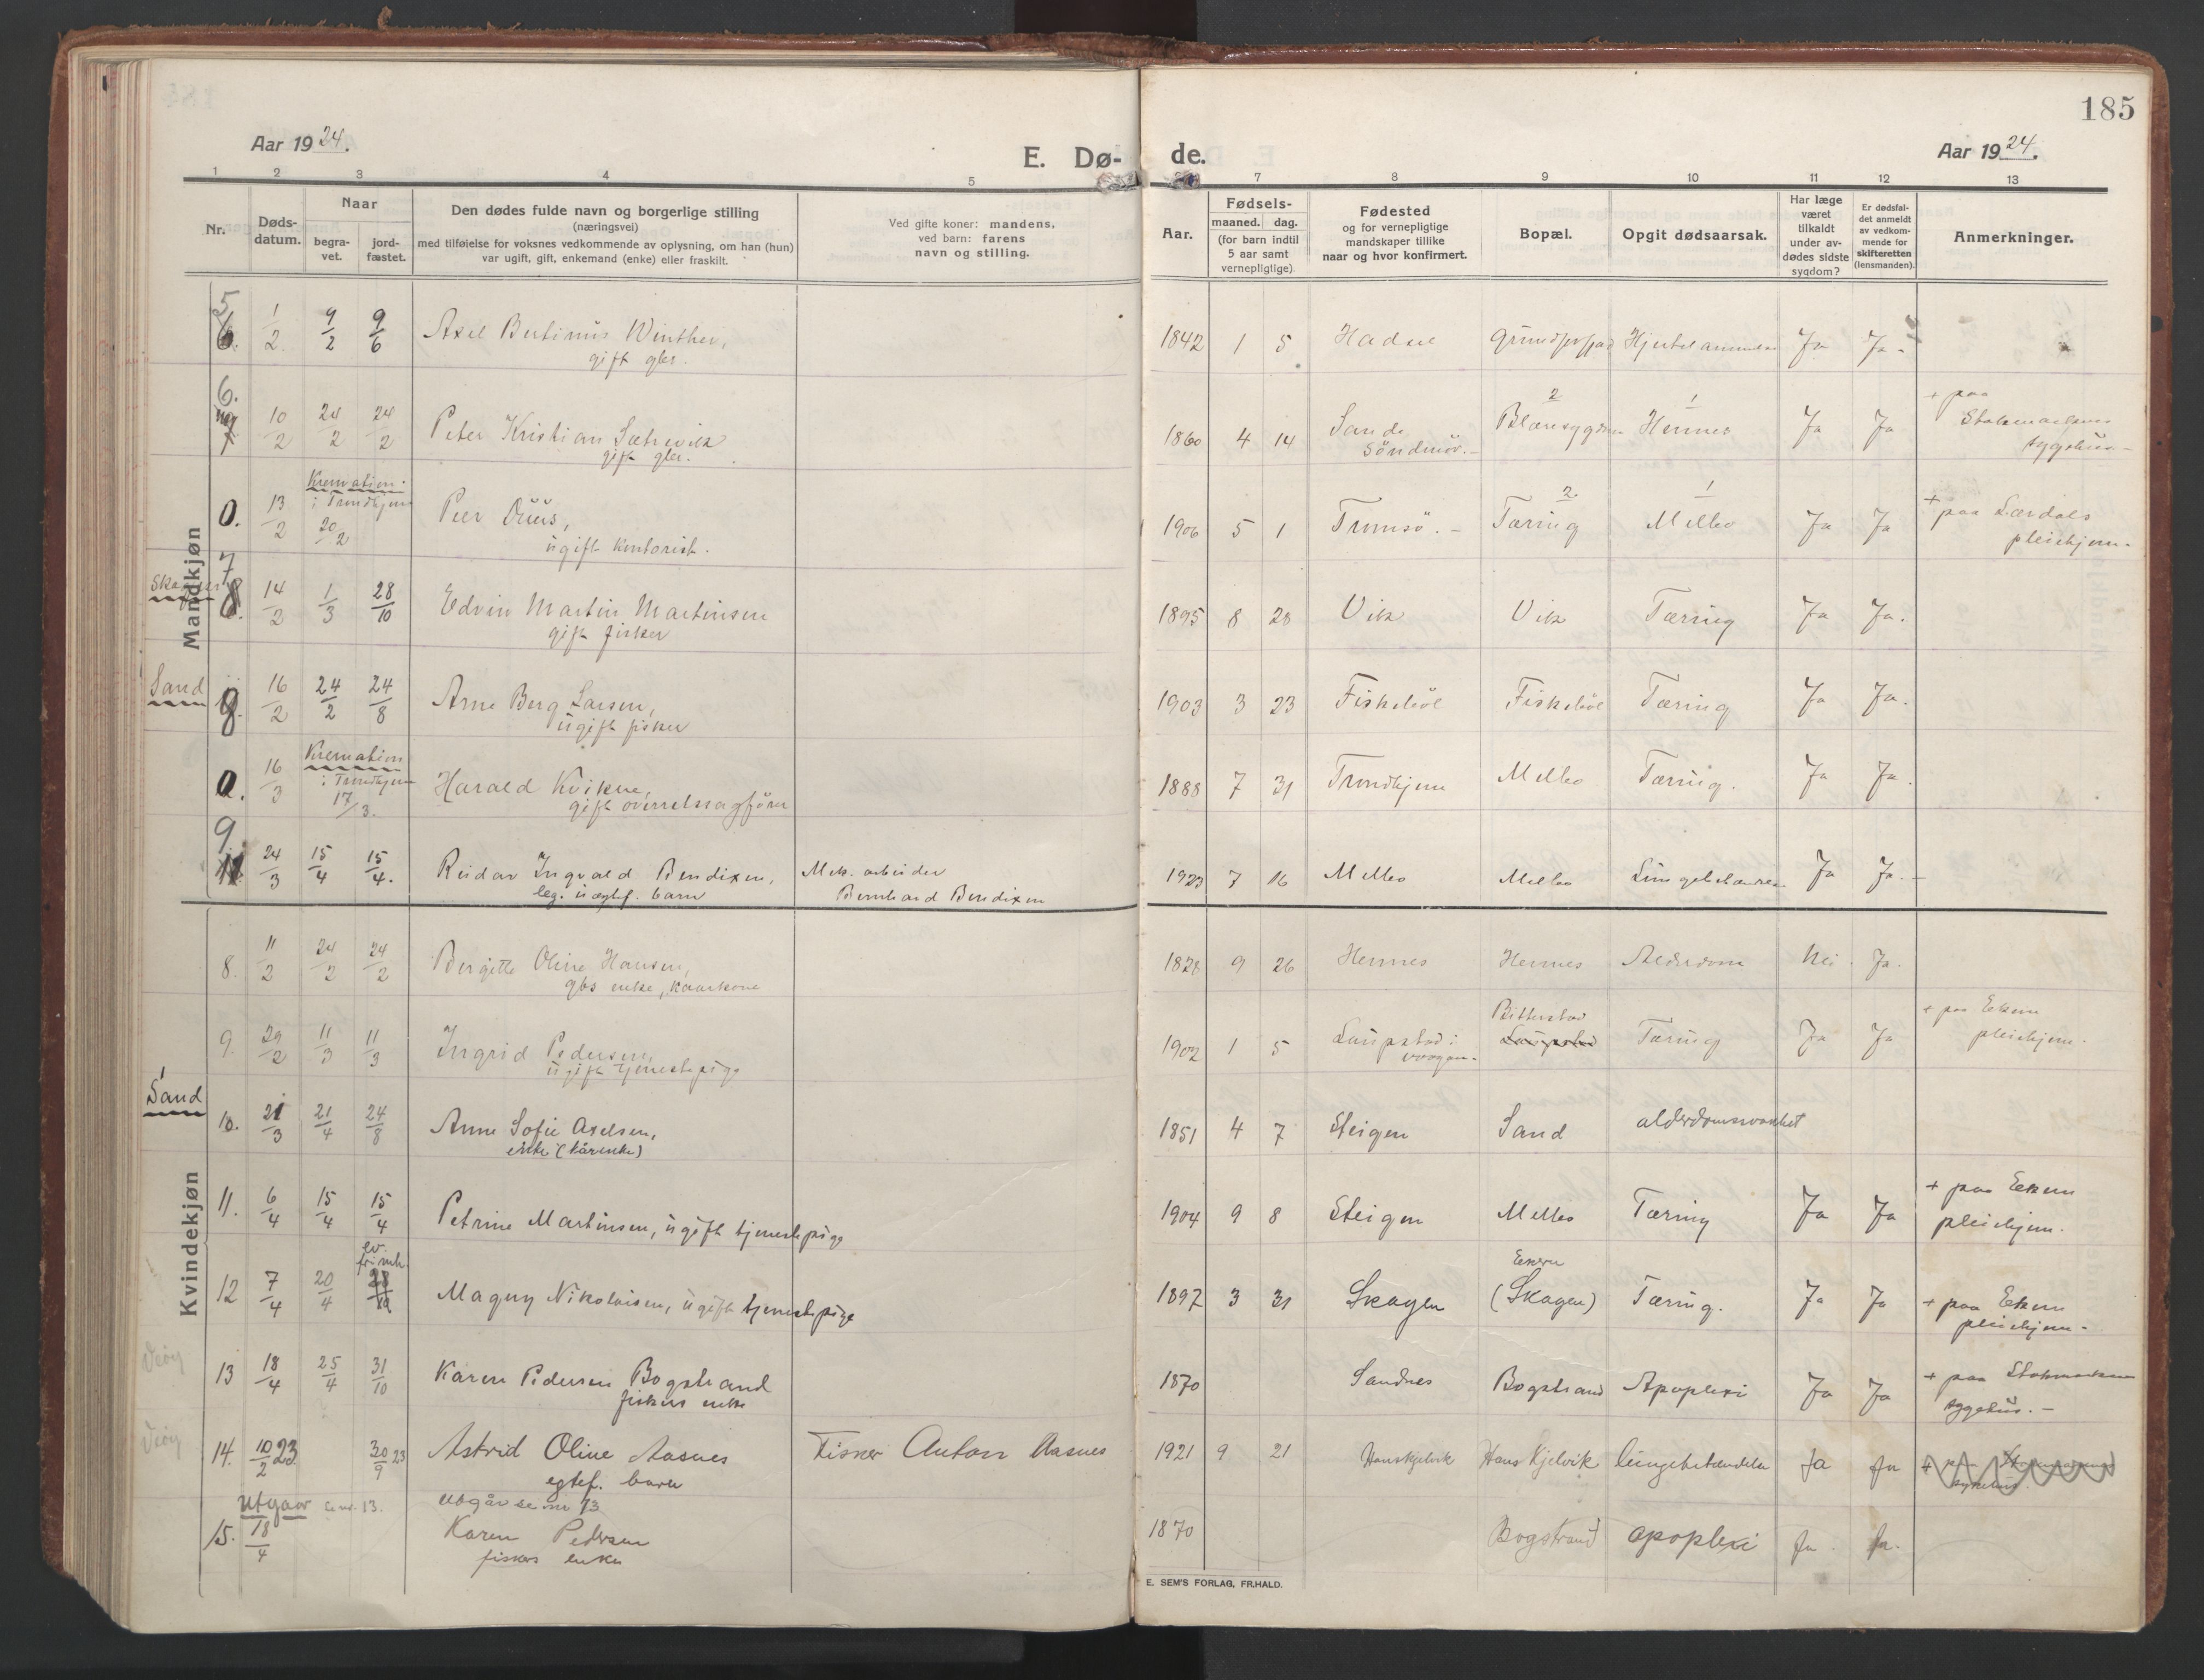 185
Aar 1924.
E. Dø-
de.
Aar 1924.
1 2 3 4 5
7 8 9 10 11 12 13
Nr.
Døds-
datum.
Naar
begra-
vet.
jord-
fæstet.
Den dødes fulde navn og borgerlige stilling
(næringsvei)
med tilføielse for voksnes vedkommende av oplysning, om han (hun)
var ugift, gift, enkemand (enke) eller fraskilt.
Ved gifte koner: mandens,
ved barn: farens
navn og stilling.
Aar.
Fødsels-
maaned. dag.
(for barn indtil
5 aar samt
vernepligtige).
Fødested
og for vernepligtige
mandskaper tillike
naar og hvor konfirmert.
Bopæl.
Opgit dødsaarsak.
Har læge
været
tilkaldt
under av-
dødes sidste
sygdom?
Er dødsfal-
det anmeldt
av vedkom-
mende for
skifteretten
(lensmanden).
Anmerkninger.
Mandkjøn
5 1/2 9/2 9/6 Axel Bertinus Winther, 1842 1 5 Hadsel Ja Ja
gift gbr.
6. 10/2 24/2 24/2 Peter Kristian Sætrevik 1860 4 14 Sande 2 1 Hennes Ja Ja + paa
gift gbr. Söndmör.- Stokmarknes
sygehus-
Kremation
i Trondhjem
0. 13/2 20/2 Peer Duus, 1906 5 1 Tromsö.- 2 Tæring 1 Melbo Ja Ja + paa Lærdals
ugift kontorist. pleiehjem.
7
Skagen 8. 14/2 1/3 28/10 Edvin Martin Martinsen 1895 8 28 Vik Vik Tæring Ja Ja.
gift fisker
Sand 8. 16/2 24/2 24/8 Arne Berg Larsen, 1903 3 23 Fiskeböl Fiskeböl Tæring Ja Ja.
ugift fisker
Kremation
i Trondhjem
0. 16/3 17/3. Harald Kvikne, 1888 7 31 Trondhjem Melbo Tæring. Ja Ja.
gift overretssagförer
9. 24/3 15/4 15/4. Reidar Ingvald Bendixen, Mek. arbeider 1923 7 16 Melbo Melbo Ja Ja.-
leg. uægtef. barn Bernhard Bendixen
Kvindekjøn
8. 11/2 24/2 24/2 Bergitte Oline Hansen, 1828 9 26 Hennes Hennes Alderdom Nei. Ja.
gbs enke, kaarkone
9. 29/2 11/3 11/3 Ingrid Pedersen, 1902 1 5 Laupstad i Bitterstad Laupstad Tæring Ja Ja + paa Ekren
ugift tjenestepige pleiehjem.
Sand
10. 21/3 21/4 24/8 Anne Sofie Axelsen, 1851 4 7 Steigen Sand alderdomssvakhet
enke (kårenke)
11. 6/4 15/4 15/4 Petrine Martinsen, ugift tjenestepige 1904 9 8 Steigen Melbo Tæring Ja Ja + paa Ekren
pleiehjem.
ev.
frimh.
12 7/4 20/4 28/10 Magny Nikolaisen, ugift tjenestepige 1897 3 31 Skagen Ekren (Skagen) Tæring. Ja Ja + paa Ekren
pleiehjem.
13 18/4 25/4 31/10 Karen Pedersen Bogstrand 1870 Sandnes Bogstrand Apoplexi Ja Ja + paa Stokmarknes
fiskers enke sygehus.-
14. 10/2 23 30/9 23 Astrid Oline Aasnes Fisker Anton Aasnes 1921 9 21 Hanskjelvik Hans Kjelvik lungebetændelse Ja Ja
egtef. barn
utgaar se nr. 13. utgår se nr 13
15. 18/4 Karen Pedersen 1870 Bogstrand apoplexi Ja. Ja.
fiskers enke
E. SEM'S FORLAG, FR.HALD.